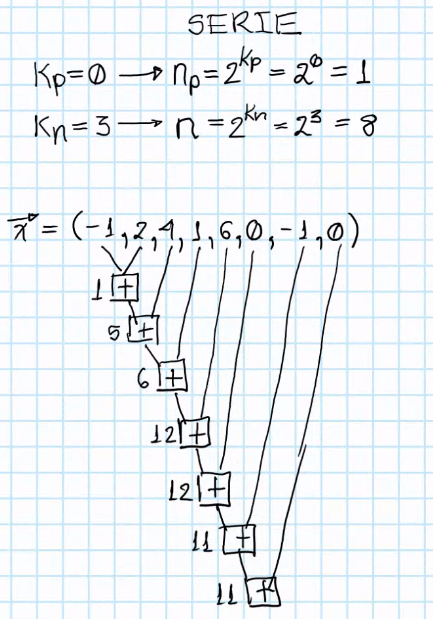 SERIE
Kp=0 → np=2^kp=2^0=1
Kn=3 → n=2^kn=2^3=8
x⃗=(-1,2,4,1,6,0,-1,0)
1 +
5 +
6 +
12 +
12 +
11 +
11 +